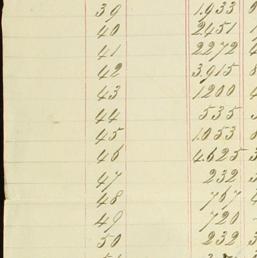 39 1.933
40 2451
41 2272
42 3,915
43 1200
44 535
45 1.053
46 4.625
47 232
48 767
49 720
50 232